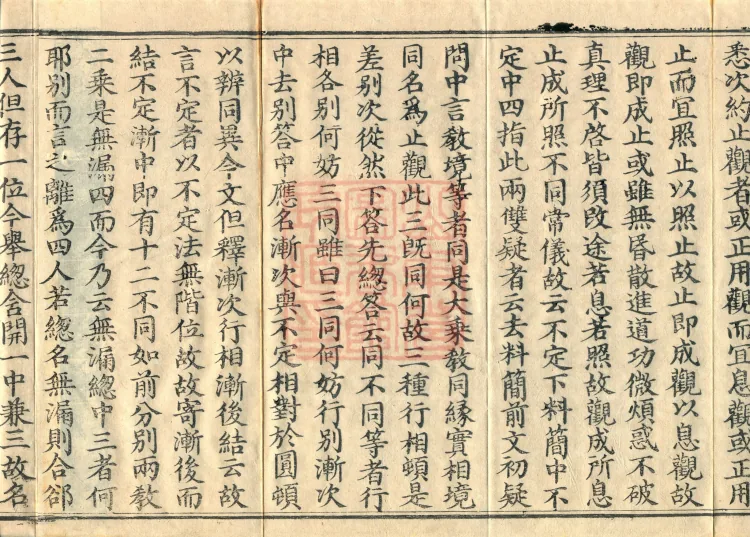 悉次約止觀者或正用觀而宜息觀或正用
止而宜照止以照止故止即成觀以息觀故
觀即成止或雖無昬散進道功微煩惑不破
真理不啓皆須改途若息若照故觀成所息
止成所照不同常儀故云不定下料簡中不
定中四指此兩雙疑者云去料簡前文初疑
問中言教境等者同是大乗教同緣實相境
同名爲止觀此三既同何故三種行相頓是
差别次從然下答先總答云同不同等者行
相各别何妨三同雖曰三同何妨行别漸次
中去别答中應名漸次與不定相對於圓頓
以辨同異今文但釋漸次行相漸後結云故
言不定者以不定法無階位故故寄漸後而
結不定漸中即有十二不同如前分別兩教
二乗是無漏四而今乃云無漏總中三者何
耶别而言之離爲四人若總名無漏則合郤
三人但存一位今舉總含開一中兼三故名